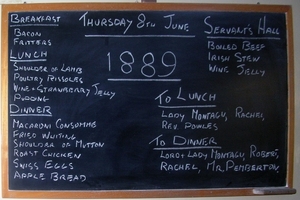 BREAKFAST
BACON
FRITTERS
LUNCH
SHOULDER OF LAMB
POULTRY RISSOLES
WINE & STRAWBERRY JELLY
PUDDING
DINNER
MACARONI CONSOMME
FRIED WHITING
SHOULDER OF MUTTON
ROAST CHICKEN
SWISS EGGS
APPLE BREAD
THURSDAY 8TH JUNE
1889
SERVANT'S HALL
BOILED BEEF
IRISH STEW
WINE JELLY
TO LUNCH
LADY MONTAGU, RACHEL,
REV POWLES
TO DINNER
LORD & LADY MONTAGU, ROBERT,
RACHEL, MR. PEMBERTON